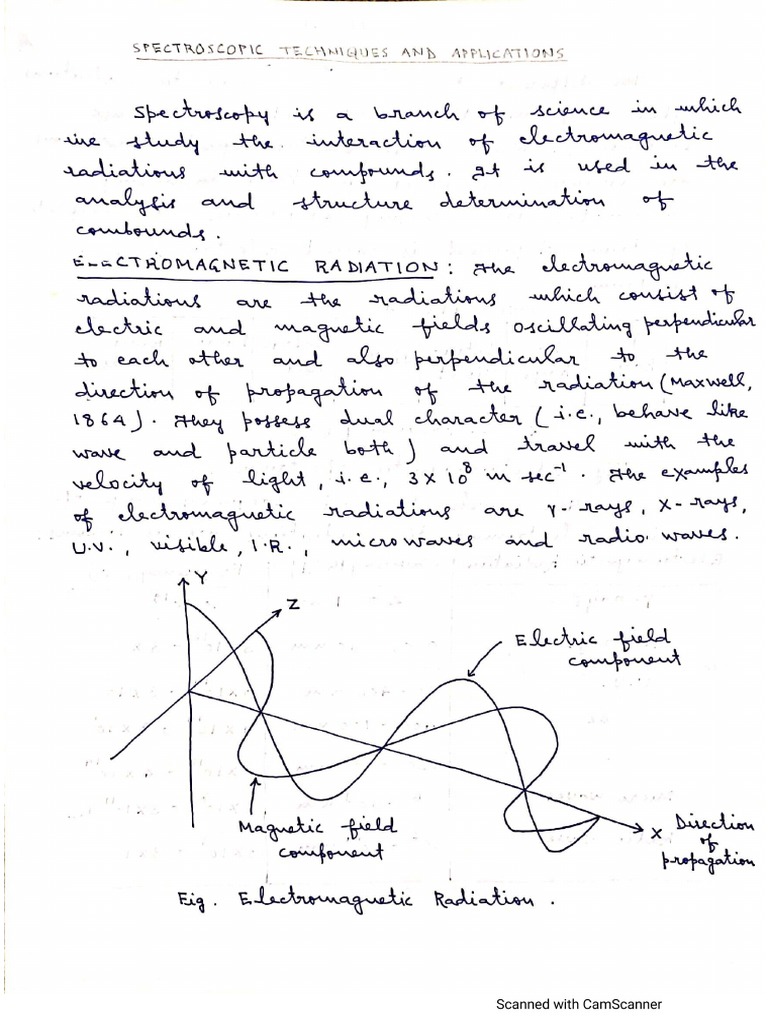 SPECTROSCOPIC TECHNIQUES AND APPLICATIONS
Spectroscopy is a branch of science in which
we study the interaction of electromagnetic
radiations with compounds. It is used in the
analysis and structure determination of
compounds.
ELECTROMAGNETIC RADIATION: The electromagnetic
radiations are the radiations which consist of
electric and magnetic fields oscillating perpendicular
to each other and also perpendicular to the
direction of propagation of the radiation (Maxwell,
1864). They possess dual character (i.e., behave like
wave and particle both) and travel with the
velocity of light, i.e., 3 x 10⁸ m sec⁻¹. The examples
of electromagnetic radiations are γ-rays, X-rays,
U.V., visible, I.R., microwaves and radio waves.
Y
Z
Electric field
component
Magnetic field
component
X Direction
of
propagation
Fig. Electromagnetic Radiation.
Scanned with CamScanner